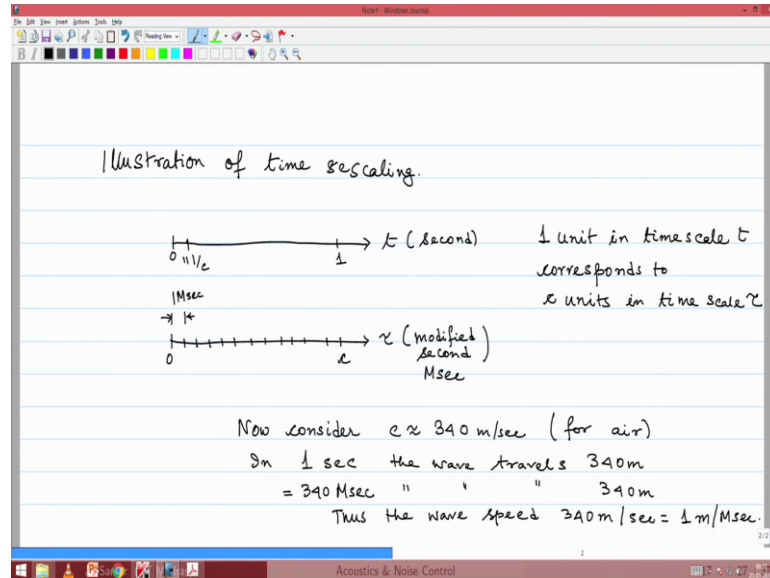 Note1 - Windows Journal
File Edit View Insert Actions Tools Help
Reading View
B I
Illustration of time rescaling.
t (second)
0 1/c 1
1 unit in timescale t
corresponds to
c units in time scale τ
1Msec
τ (modified
second)
Msec
0 c
Now consider c ≈ 340 m/sec (for air)
In 1 sec the wave travels 340m
= 340 Msec " " " 340m
Thus the wave speed 340m/sec = 1m/Msec.
2/2
2
Acoustics & Noise Control